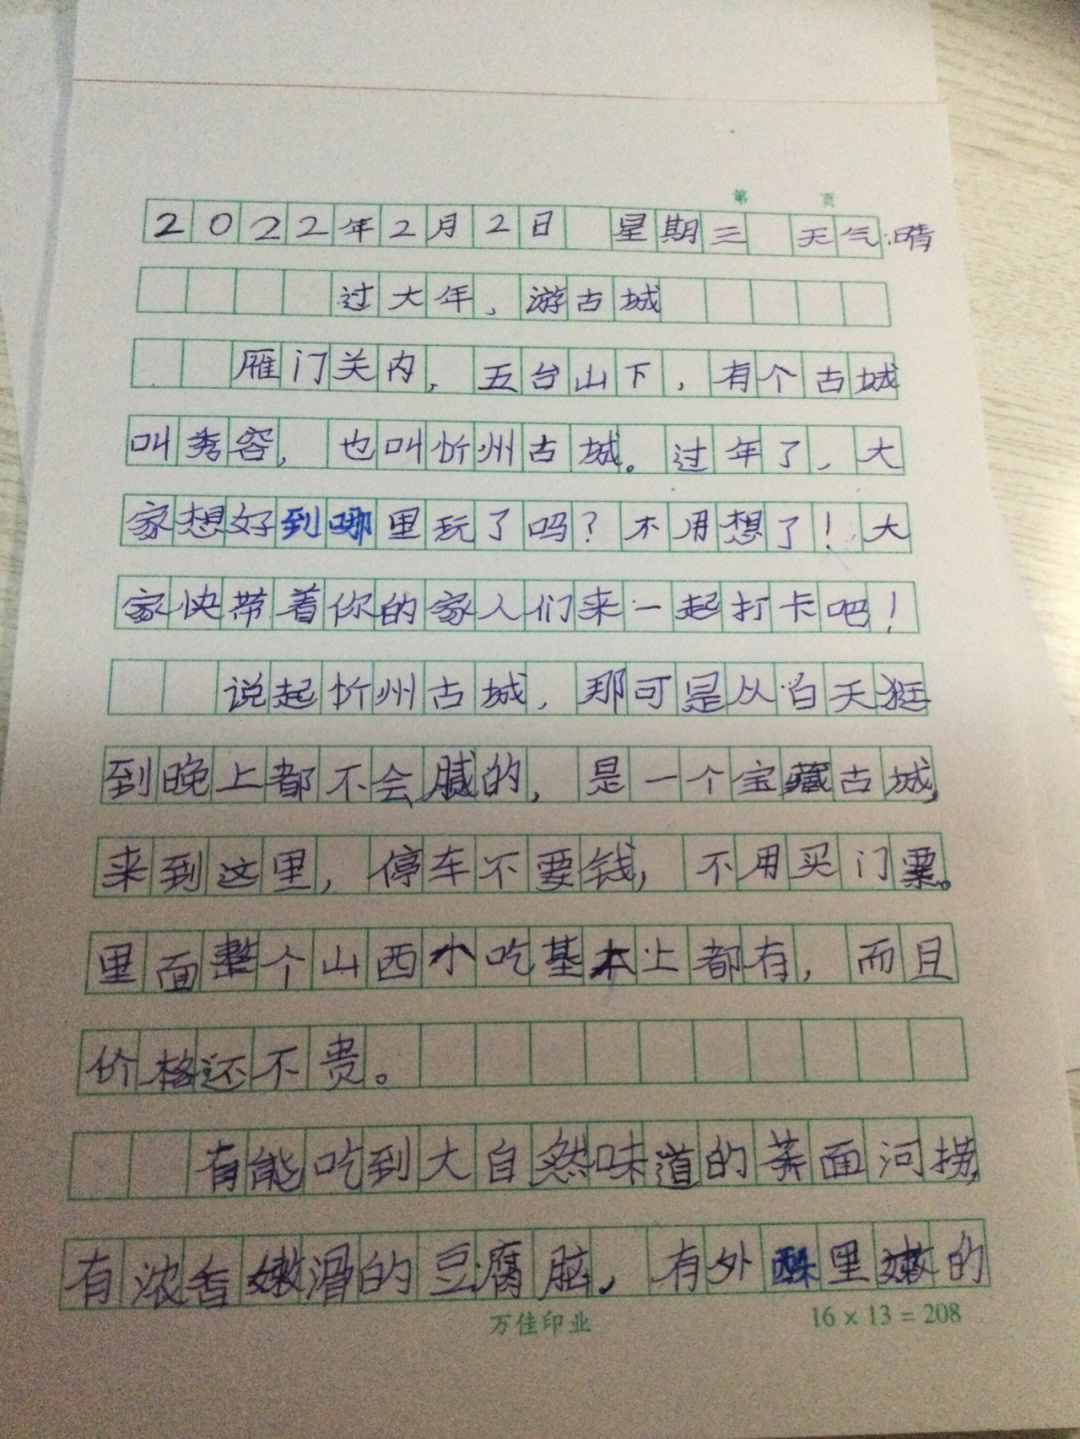 第 页
2022年2月2日 星期三 天气:晴
过大年，游古城
雁门关内，五台山下，有个古城
叫秀容，也叫忻州古城。过年了，大
家想好到哪里玩了吗？不用想了！大
家快带着你的家人们来一起打卡吧！
说起忻州古城，那可是从白天逛
到晚上都不会腻的，是一个宝藏古城，
来到这里，停车不要钱，不用买门票。
里面整个山西小吃基本上都有，而且
价格还不贵。
有能吃到大自然味道的荞面河捞，
有浓香嫩滑的豆腐脑，有外酥里嫩的
万佳印业 16×13=208